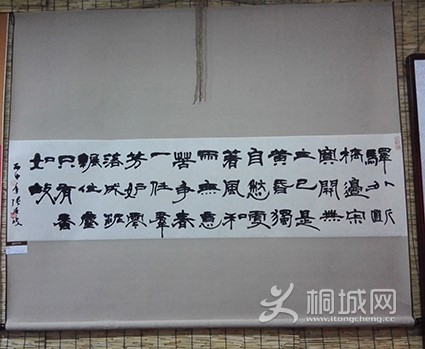 驛外斷
橋邊寂
寞開無
主已是
黃昏獨
自愁更
著風和
雨無意
苦爭春
一任群
芳妒零
落成泥
輾作塵
只有香
如故
桐城网
www.itongcheng.cc